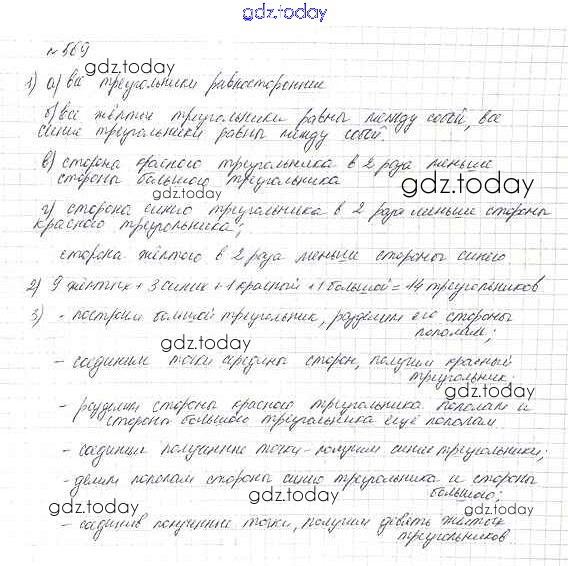 gdz.today
№569
gdz.today
1) а) все треугольники равносторонние
б) все жёлтые треугольники равны между собой, все
синие треугольники равны между собой.
в) сторона красного треугольника в 2 раза меньше
стороны большого треугольника
gdz.today
gdz.today
г) сторона синего треугольника в 2 раза меньше стороны
красного треугольника;
сторона жёлтого в 2 раза меньше стороны синего
2) 9 жёлтых + 3 синих + 1 красный + 1 большой = 14 треугольников
3) - построим большой треугольник, разделим его стороны
пополам;
gdz.today
- соединим точки середины сторон, получим красный
треугольник;
gdz.today
- разделим стороны красного треугольника пополам и
стороны большого треугольника ещё пополам.
- соединим полученные точки - получим синие треугольники;
- делим пополам стороны синего треугольника и стороны
большого;
gdz.today
gdz.today
gdz.today
- соединив полученные точки, получим девять жёлтых
треугольников